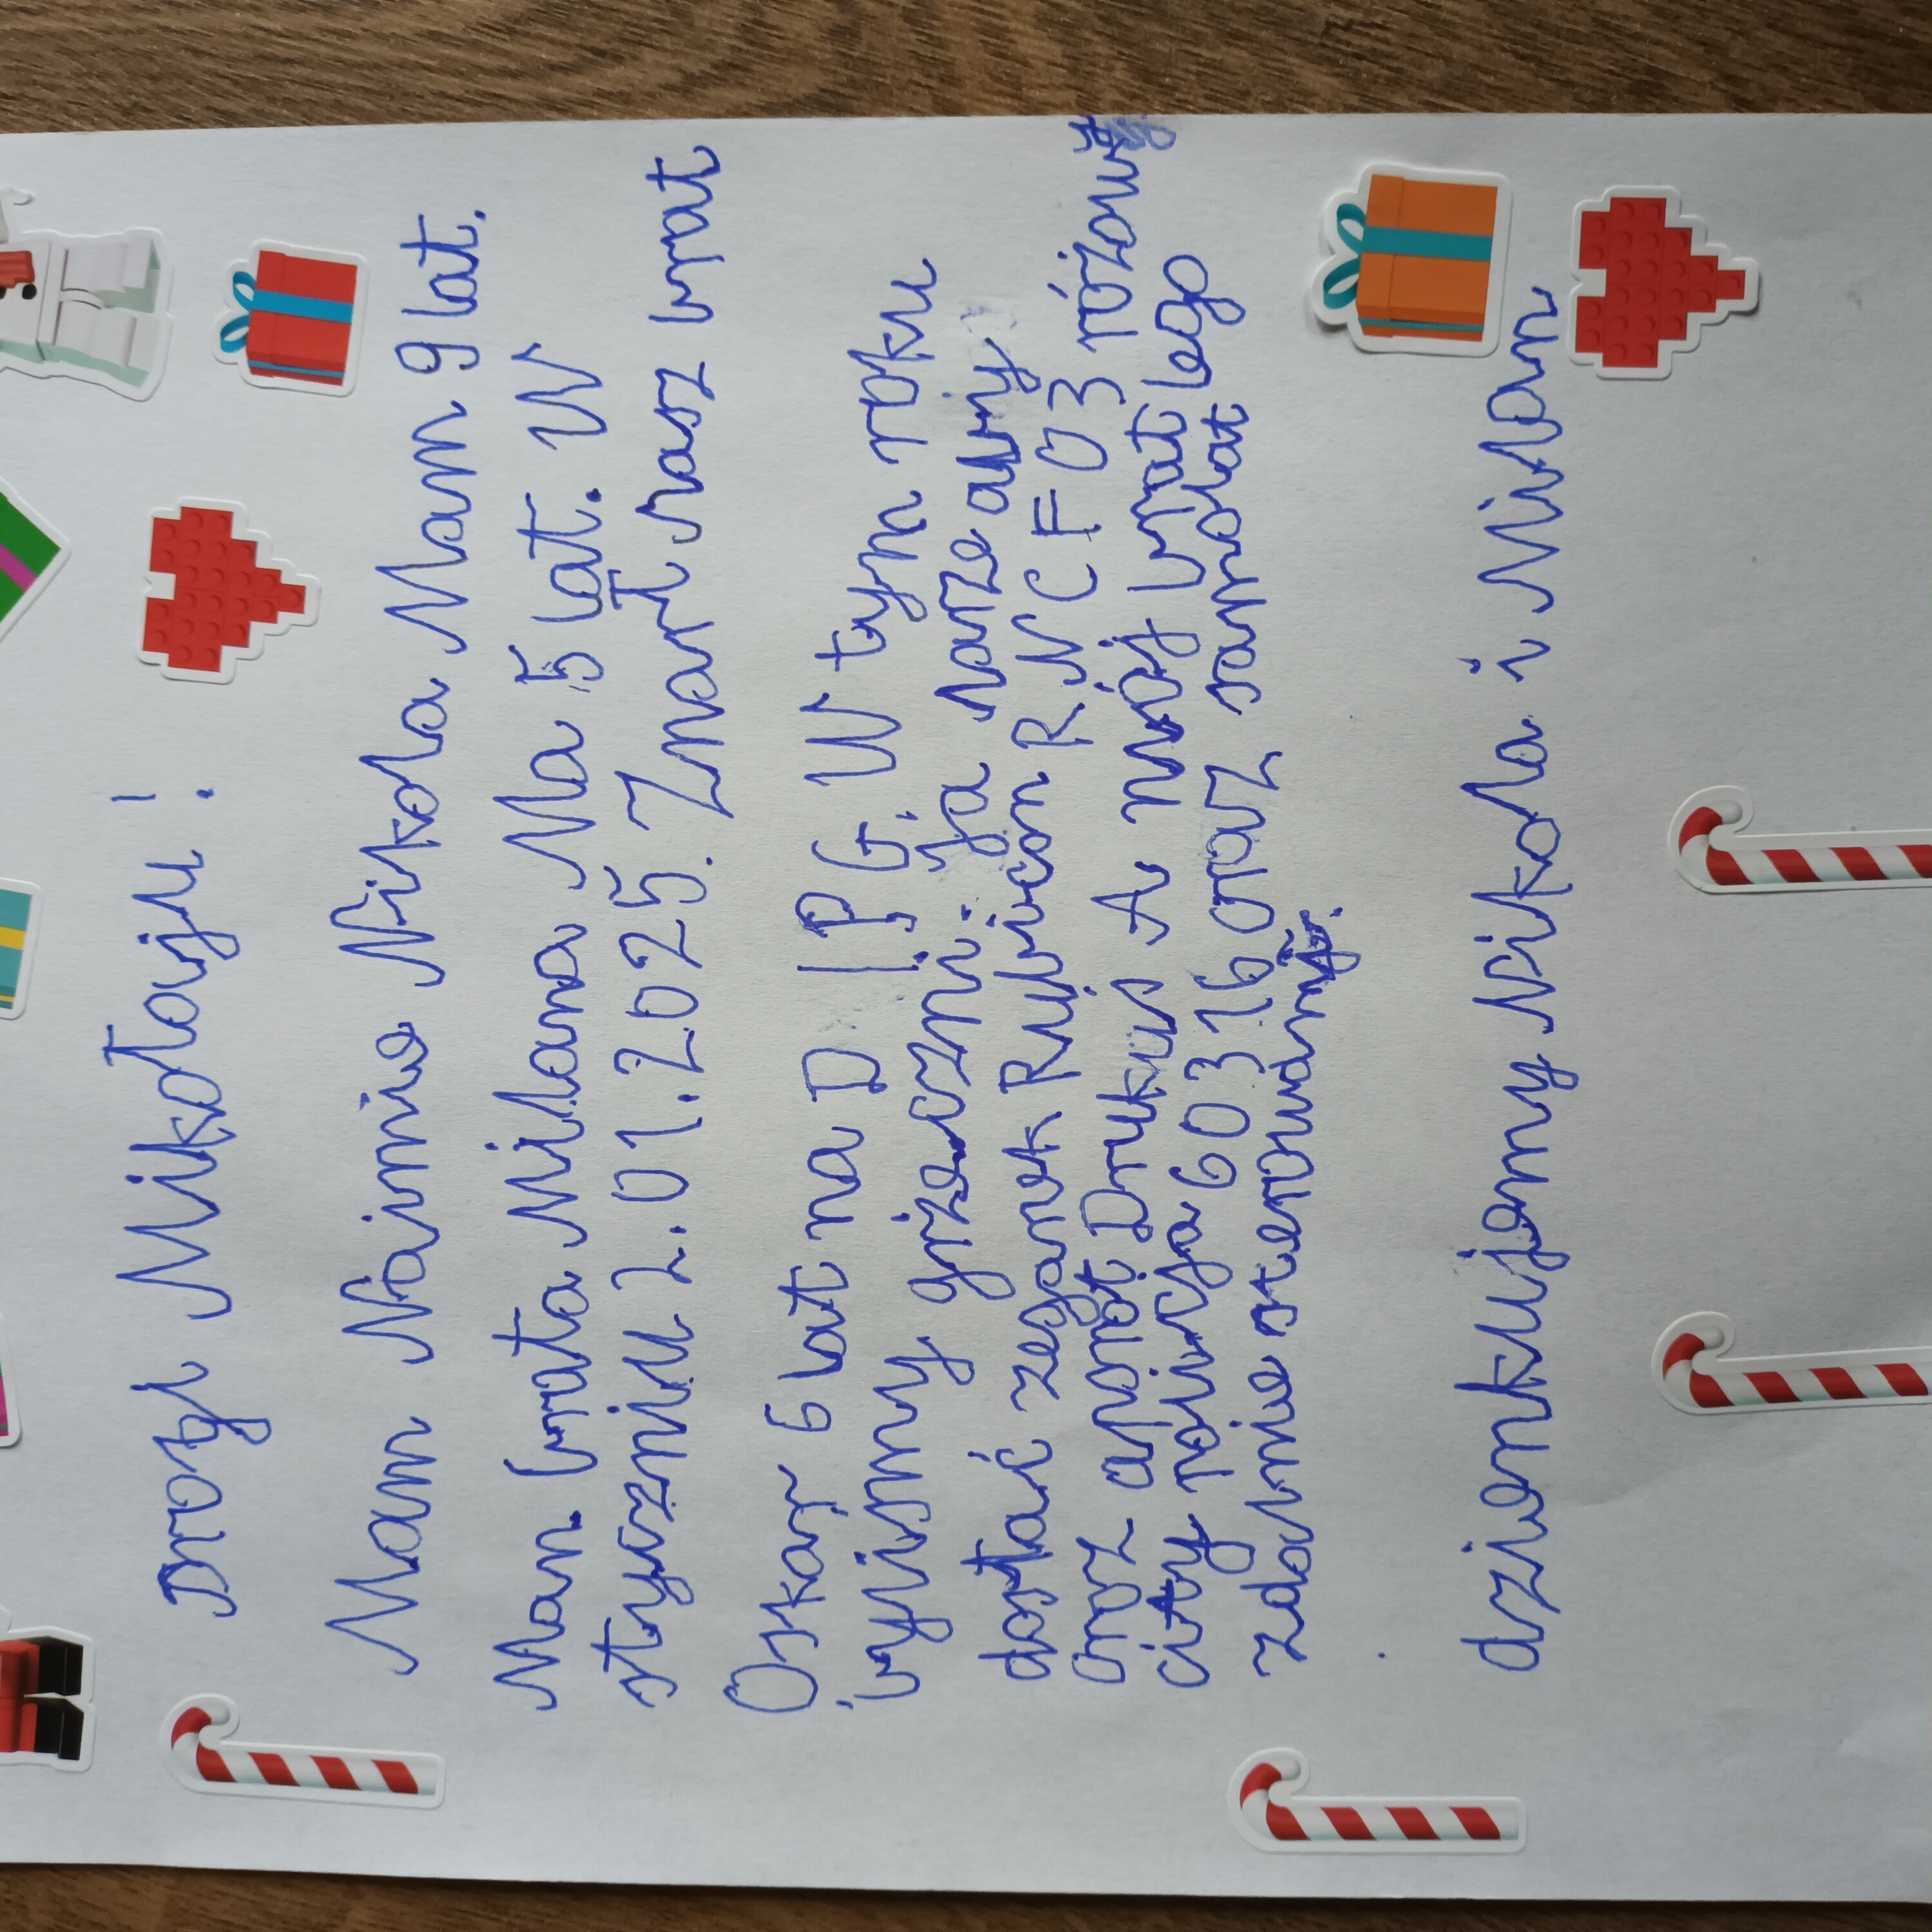 Drogi Mikołaju!
Mam Naimie Nikola Mam 9 lat.
Mam brata Milana Ma 5 lat. W
styczniu 2.01.2025. Zmarł nasz brat
Oskar 6 lat na D I PG. W tym roku
byliśmy grzeczni. Ja marze aby
dostać zegarek Rubicon RNCF03 różowy
oraz aparat Drukuis A mój brat lego
city policja 60316 oraz samolot
zdalnie sterowany.
dzienkujemy Nikola i Milan